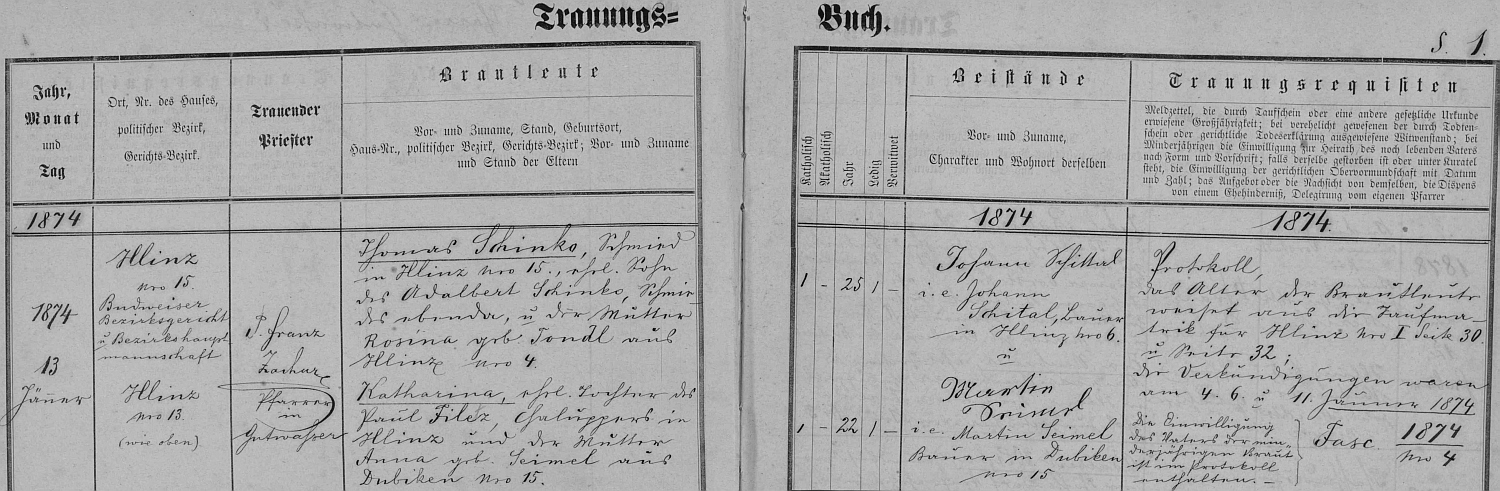 Trauungs=
Buch.
S. 1.
Jahr,
Monat
und
Tag
Ort, Nr. des Hauses,
politischer Bezirk,
Gerichts-Bezirk.
Trauender
Priester
Brautleute
Vor- und Zuname, Stand, Geburtsort,
Haus-Nr., politischer Bezirk, Gerichts-Bezirk; Vor- und Zuname
und Stand der Eltern
Katholisch
Akatholisch
Jahr
Ledig
Verwitwet
Beistände
Vor- und Zuname,
Charakter und Wohnort derselben
Trauungsrequisiten
Meldzettel, die durch Taufschein oder eine andere gesetzliche Urkunde
erwiesene Großjährigkeit; bei verehelicht gewesenen der durch Todten-
schein oder gerichtliche Todeserklärung ausgewiesene Witwenstand; bei
Minderjährigen die Einwilligung zur Heirath des noch lebenden Vaters
nach Form und Vorschrift; falls derselbe gestorben ist oder unter Kuratel
steht, die Einwilligung der gerichtlichen Obervormundschaft mit Datum
und Zahl; das Aufgebot oder die Nachsicht von demselben, die Dispens
von einem Ehehinderniß, Delegirung vom eigenen Pfarrer
1874
1874
1874.
1874
13
Jänner
Hlinz
nro 15.
Budweiser
Bezirksgericht
u Bezirkshaupt
mannschaft
Hlinz
nro 13.
(wie oben)
P. Franz
Pfarrer
in
Gutwasser
Thomas Schinko, Schmied
in Hlinz nro 15., ehel. Sohn
des Adalbert Schinko, Schmie
des ebenda, u der Mutter
Rosina geb Tondl aus
Hlinz nro 4.
Katharina, ehel. Tochter des
Paul Filez, Chaluppers in
Hlinz und der Mutter
Anna geb. Seimel aus
Dubiken Nro 15.
1 - 25 1 -
1 - 22 1 -
Johann Schittal
i. e. Johann
Schital, Bauer
in Hlinz nro 6.
u
Martin
Seimel
i. e. Martin Seimel
Bauer in Dubiken
nro 15
Protokoll,
das Alter der Brautleute
weiset aus die Taufma-
trik für Hlinz Nro I Seite 30.
u Seite 32;
die Verkündigungen waren
am 4. 6. u 11. Jänner 1874
Die Einwilligung
des Vaters der min-
derjährigen Braut
ist im Protokoll
enthalten. -
Fasc. 1874
Nro 4